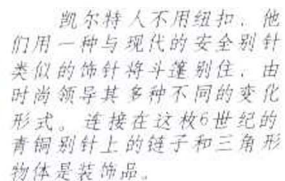 凯尔特人不用纽扣，他
们用一种与现代的安全别针
类似的饰针将斗篷别住，由
时尚领导其多种不同的变化
形式。连接在这枚6世纪的
青铜别针上的链子和三角形
物体是装饰品。